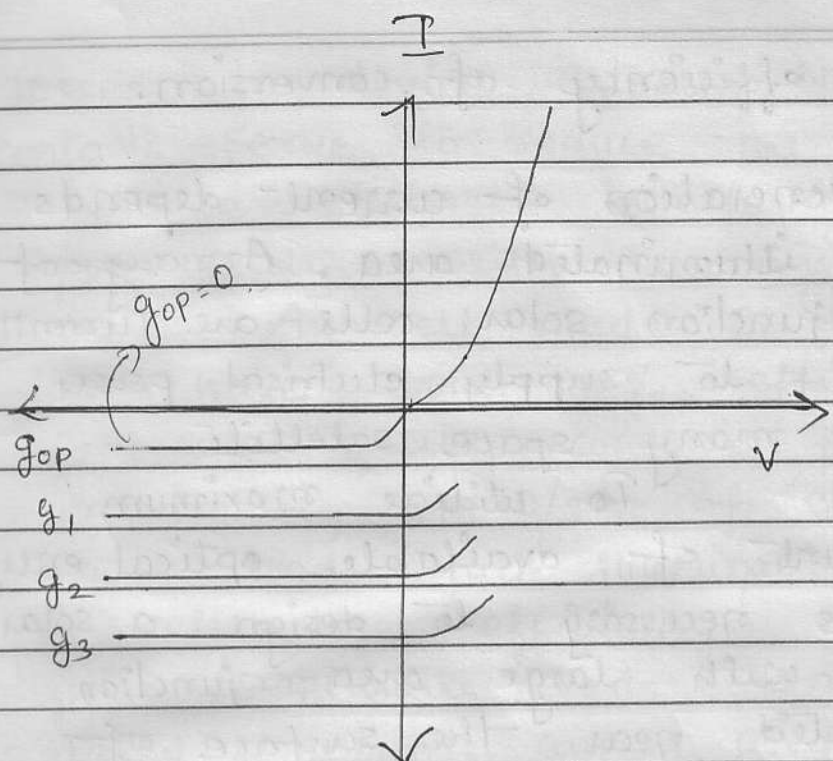 I
gop=0.
gop
V
g1
g2
g3